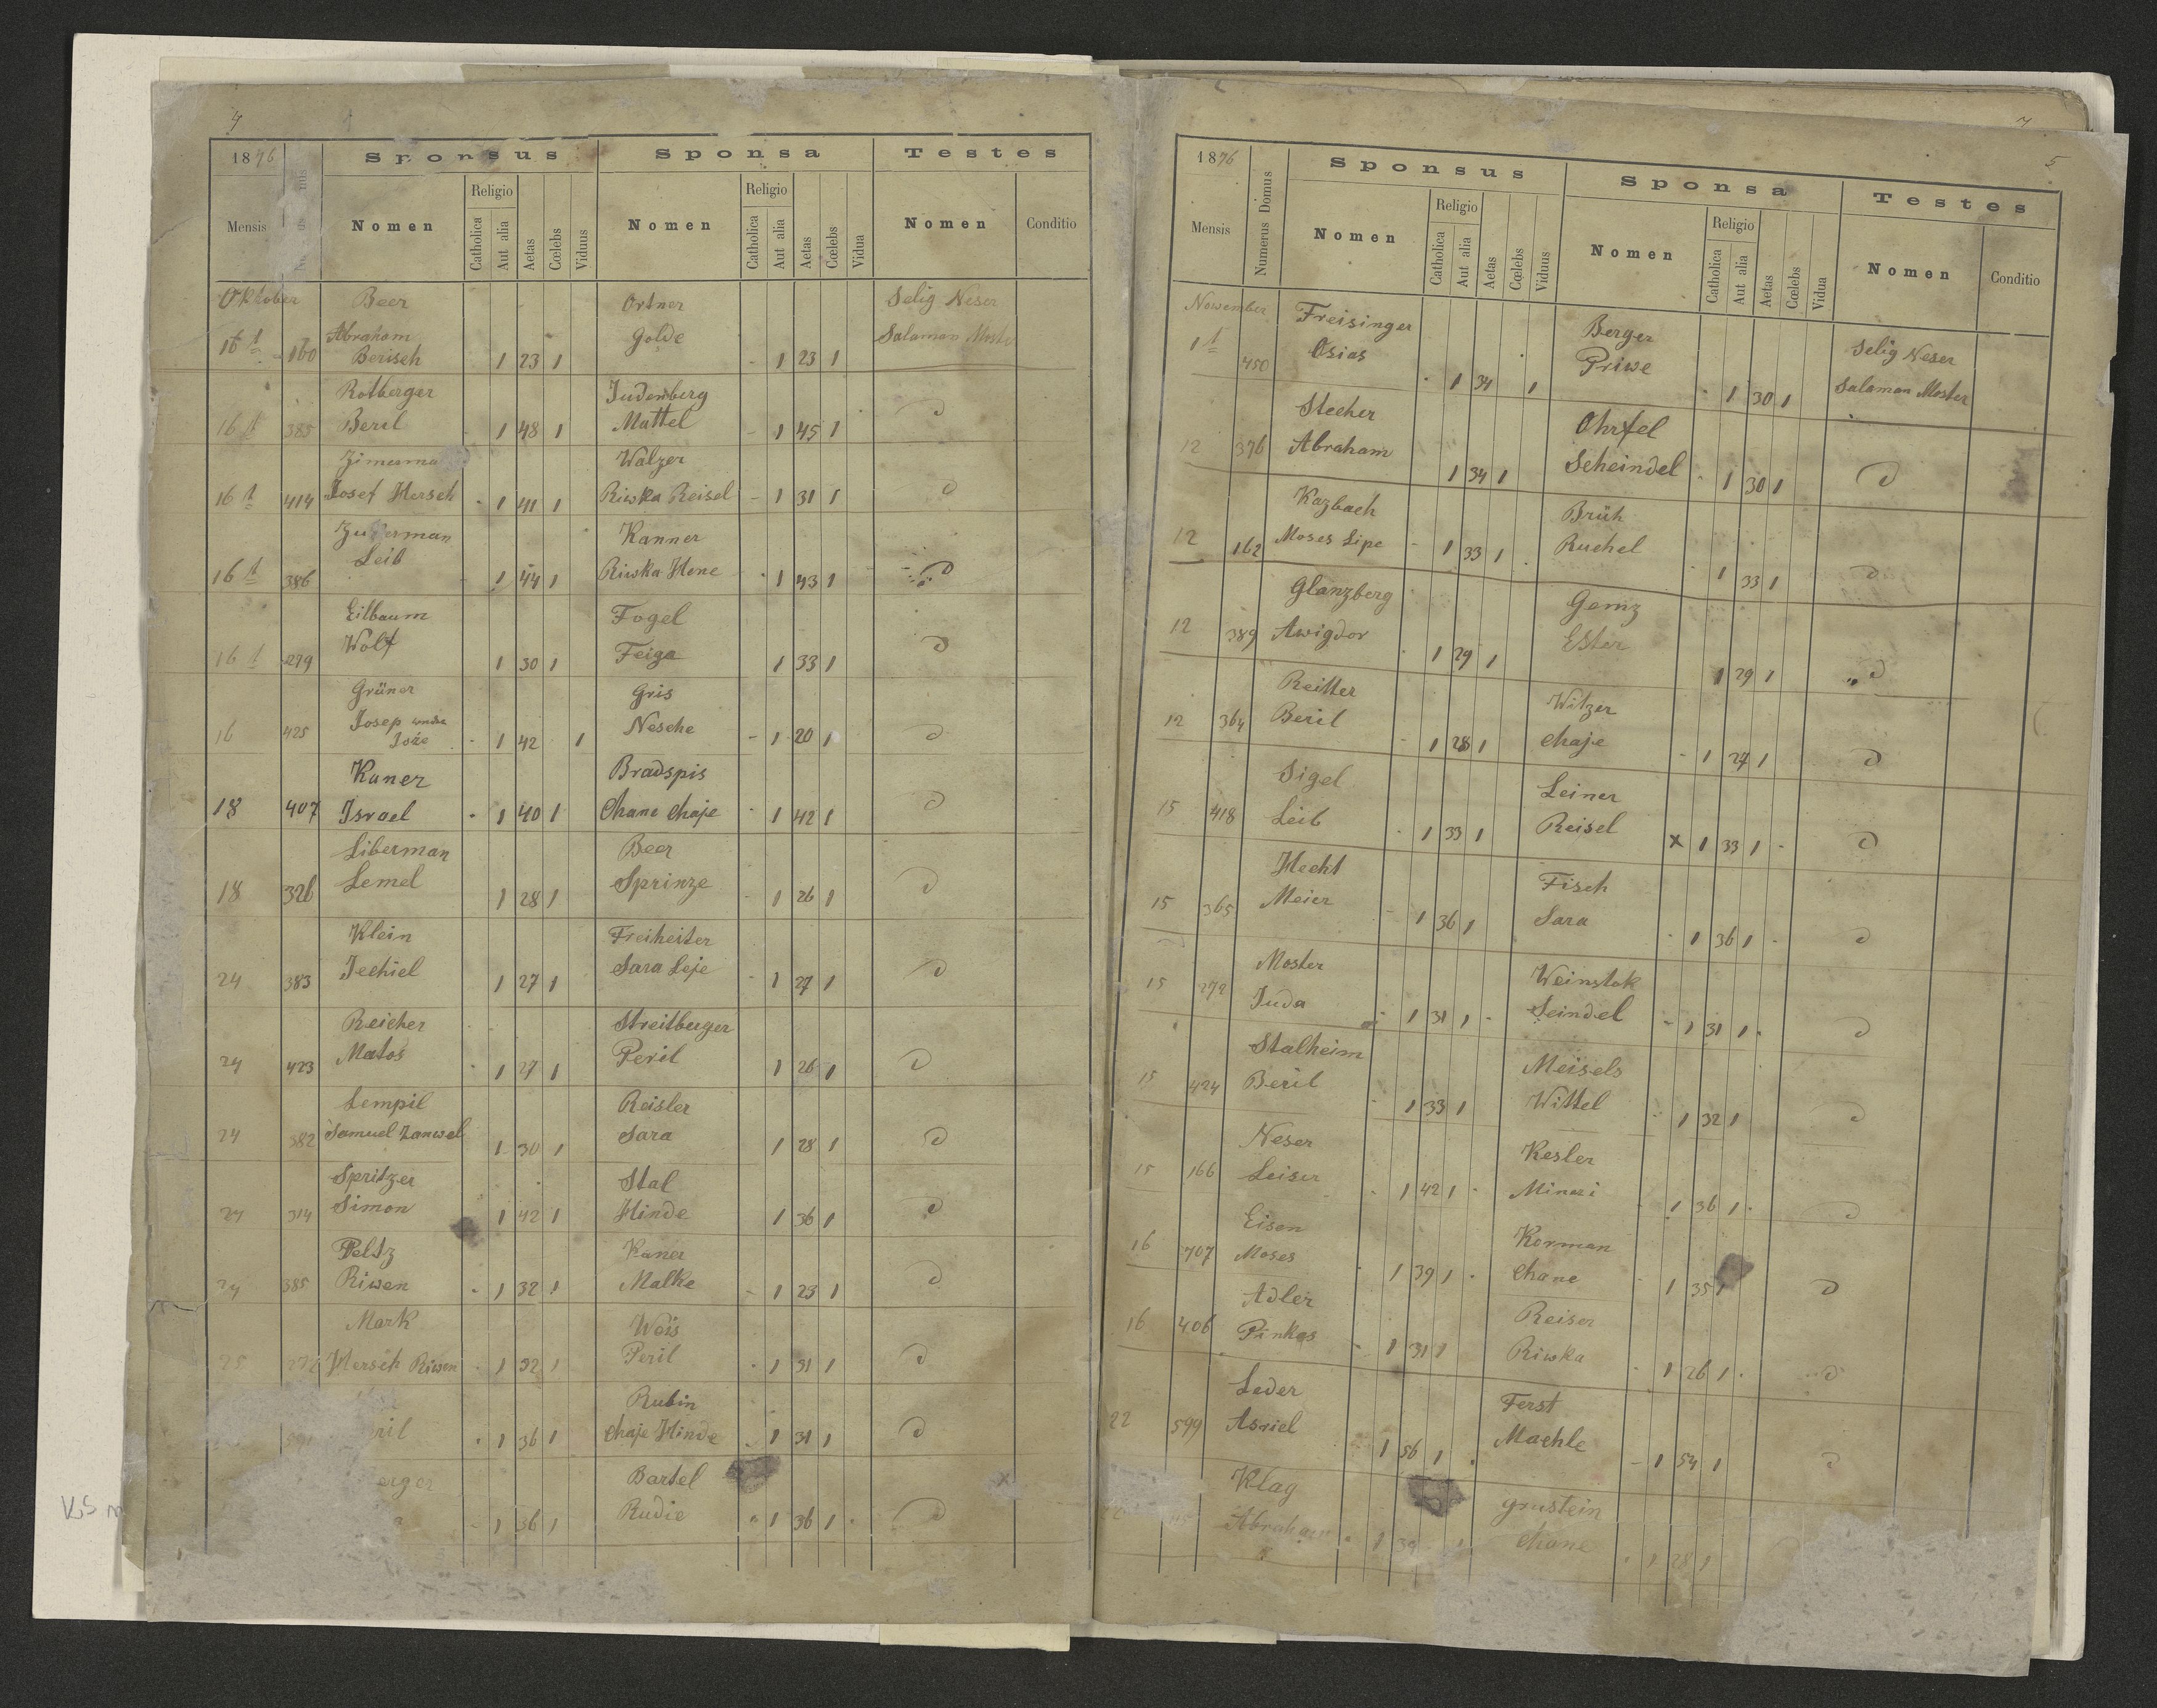 4
1876 Sponsus Sponsa Testes
Mensis Nomen Religio Catholica Aut alia Aetas Cœlebs Viduus Nomen Religio Catholica Aut alia Aetas Cœlebs Vidua Nomen Conditio
Oktober Beer Ortner Selig Neser
Abraham Golde Salamon Moster
16 160 Berisch 1 23 1 1 23 1
Rotberger Judenberg
16 385 Beril 1 48 1 Mattel 1 45 1
Walzer
16 414 Josef Hersch 1 41 1 Riwka Reisel 1 31 1
Kanner
16 386 Leib 1 44 1 Riwka Hene 1 43 1
Eilbaum Fogel
16 279 Wolf 1 30 1 Feige 1 33 1
Grüner Gris
16 425 Josep 1 42 1 Nesche 1 20 1
Kaner Bradspis
18 407 Israel 1 40 1 Chane Chaje 1 42 1
Liberman Beer
18 326 Lemel 1 28 1 Sprinze 1 26 1
Klein Freiheiter
24 383 Jechiel 1 27 1 Sara Leje 1 27 1
Reicher Streitberger
24 423 Matos 1 27 1 Peril 1 26 1
Lempil Reisler
24 382 Samuel Zanwel 1 30 1 Sara 1 28 1
Spritzer Stal
24 314 Simon 1 42 1 Hinde 1 36 1
Peltz Kaner
24 385 Riwen 1 32 1 Malke 1 23 1
Mark Weis
25 Hersch Riwen 1 32 1 Peril 1 31 1
Rubin
ril 1 36 1 Chaje Hinde 1 31 1
erger Bartel
a 1 36 1 Rudie 1 36 1
5
1876 Sponsus Sponsa Testes
Mensis Numerus Domus Nomen Religio Catholica Aut alia Aetas Cœlebs Viduus Nomen Religio Catholica Aut alia Aetas Cœlebs Vidua Nomen Conditio
November Freisinger Berger Selig Neser
1 450 Osias 1 34 1 Priwe 1 30 1 Salamon Moster
Stecher Ohrfel
12 376 Abraham 1 34 1 Scheindel 1 30 1
Kazbach Brüh
12 162 Moses Lipe 1 33 1 Ruchel 1 33 1
Glanzberg Gemz
12 389 Awigdor 1 29 1 Ester 1 29 1
Reitter Witzer
12 364 Beril 1 28 1 Chaje 1 27 1
Sigel Leiner
15 418 Leib 1 33 1 Reisel x 1 33 1
Hecht Fisch
15 365 Meier 1 36 1 Sara 1 36 1
Moster Weinstok
15 272 Juda 1 31 1 Seindel 1 31 1
Stalheim Meisels
15 424 Beril 1 33 1 Wittel 1 32 1
Neser Kesler
15 166 Leiser 1 42 1 Mineri 1 36 1
Eisen Korman
16 707 Moses 1 39 1 Chane 1 35 1
Adler Reiser
16 406 Pinkas 1 31 1 Riwka 1 26 1
Leder Ferst
22 599 Asriel 1 56 1 Machle 1 54 1
Klag Grustein
Abraham 1 39 1 Chane 1 28 1